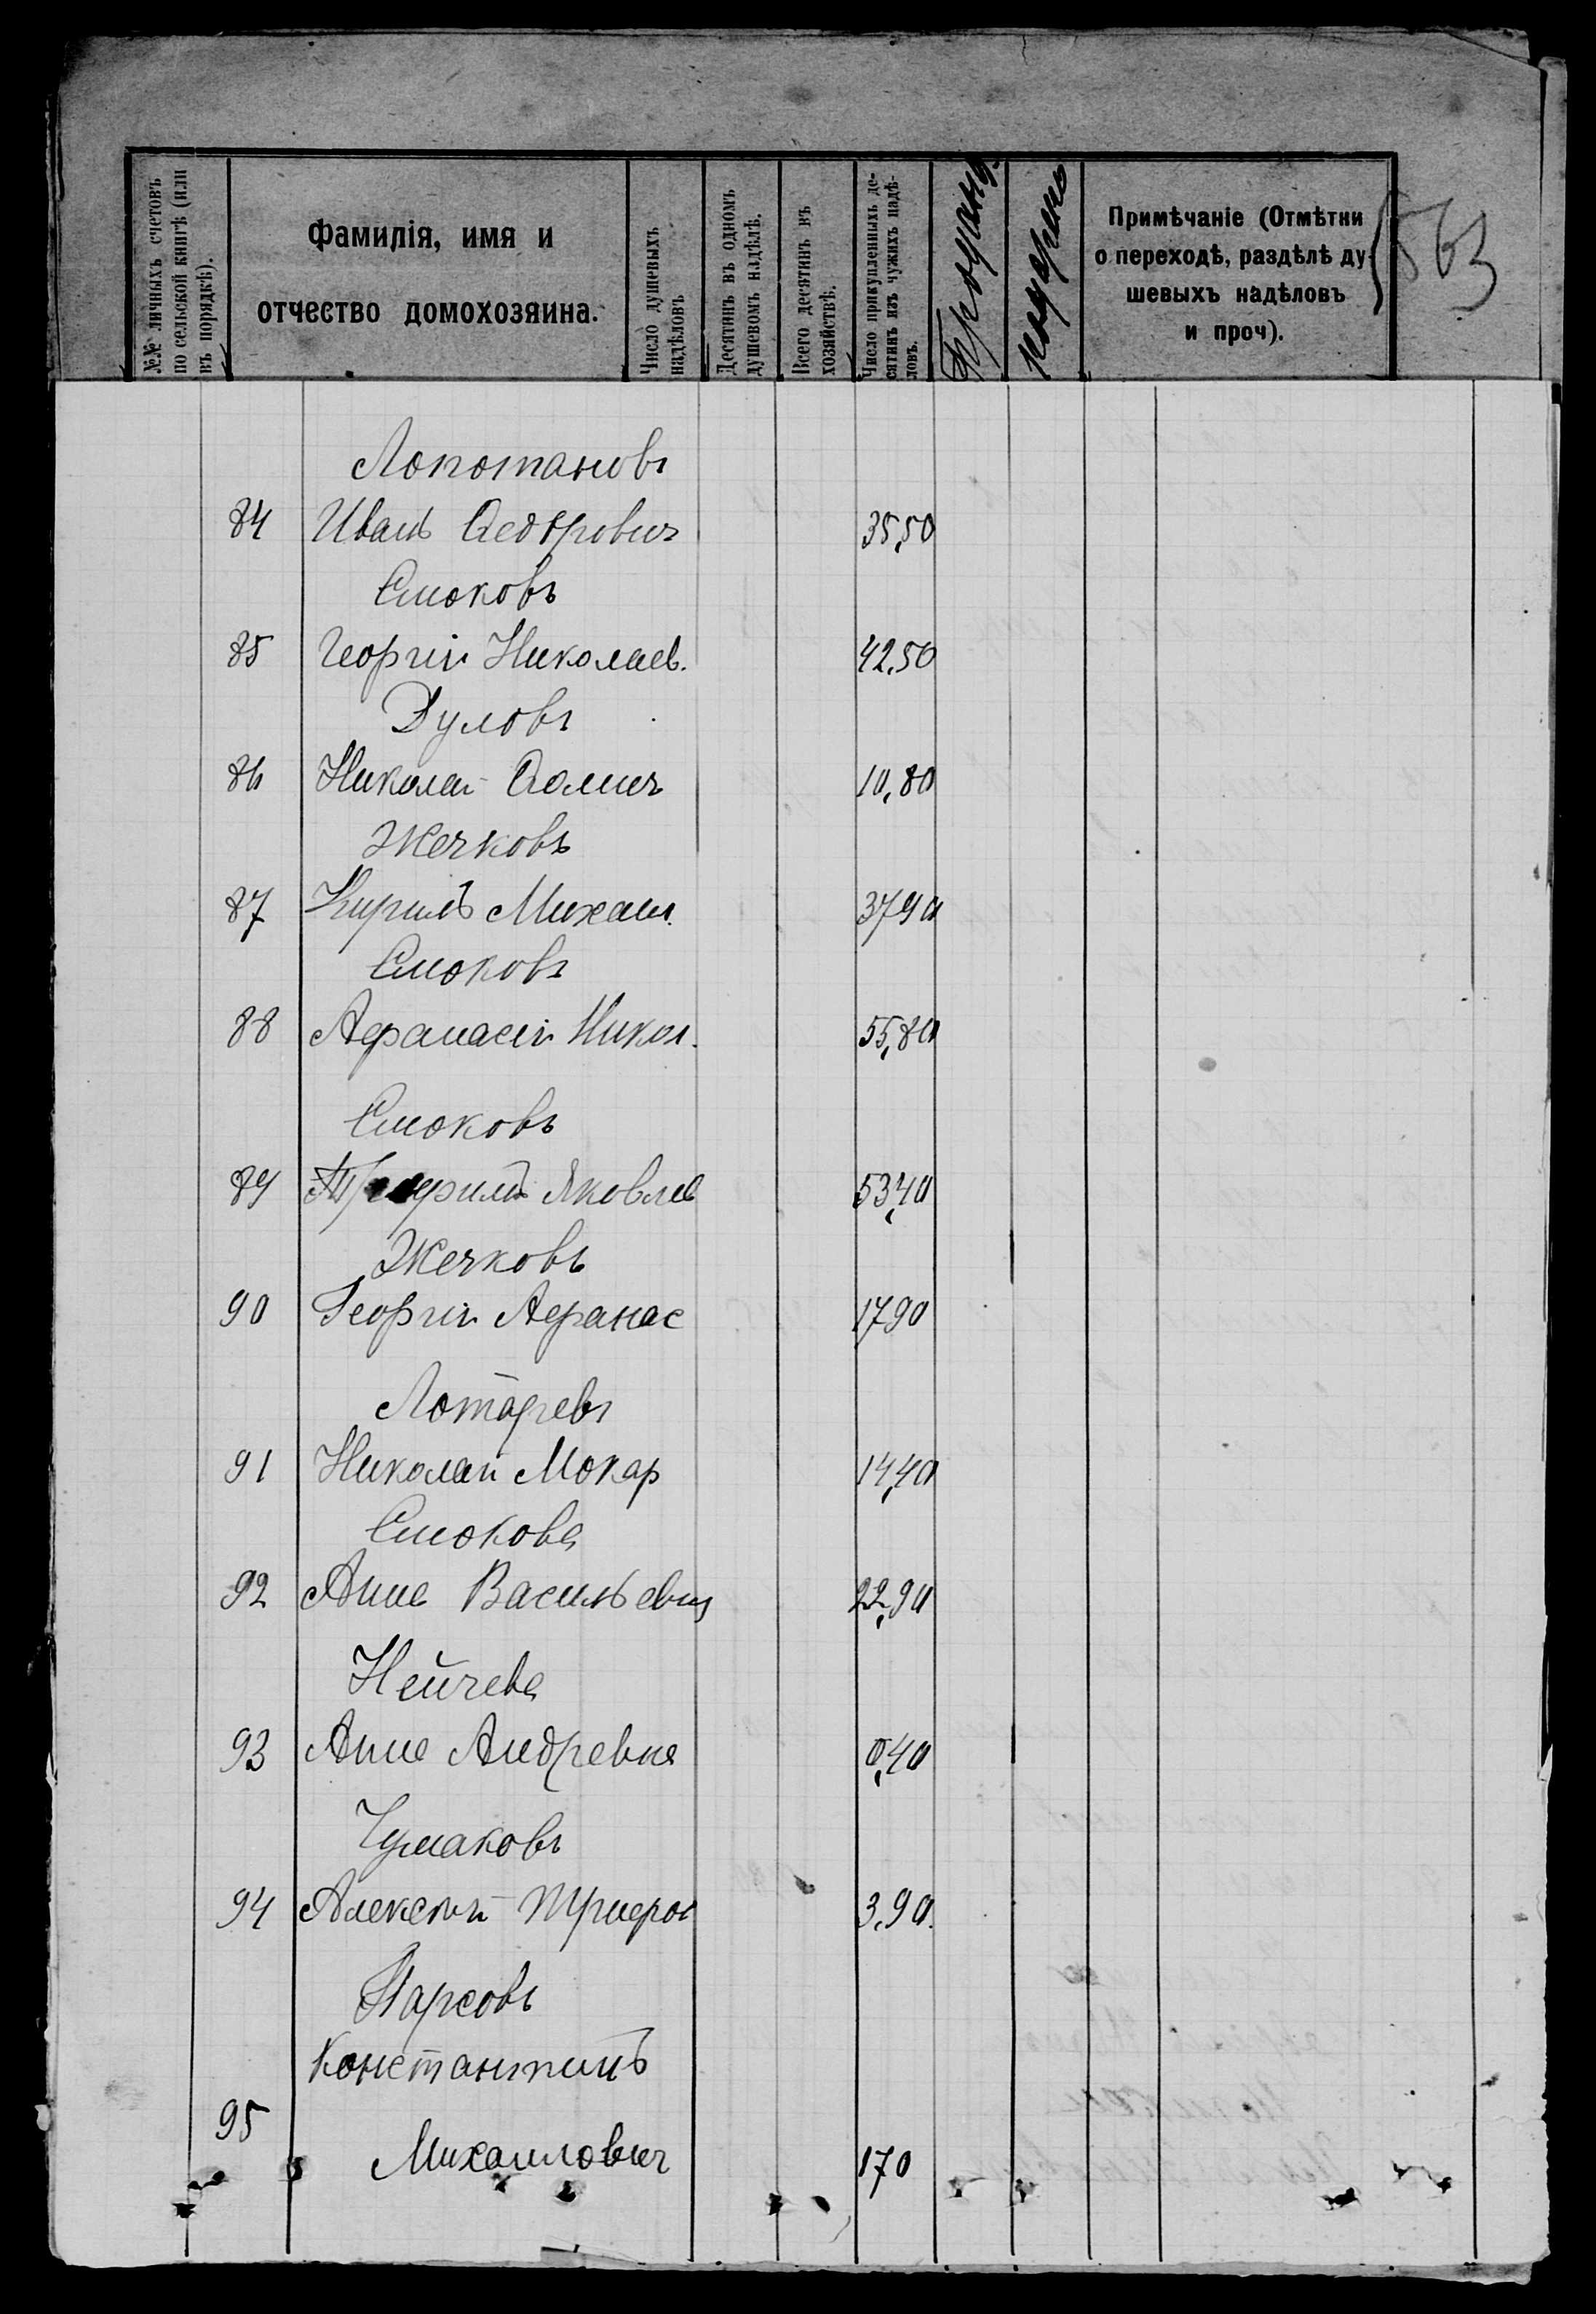 №№ личныхъ счетовъ
по сельской книгѣ (или
въ порядкѣ).
Фамилія, имя и
отчество домохозяина.
Число душевыхъ
надѣловъ
Десятинъ въ одномъ
душевомъ надѣлѣ.
Всего десятинъ въ
хозяйствѣ.
Число прикупленныхъ де-
сятинъ изъ чужихъ надѣ-
ловъ.
Примѣчаніе (Отмѣтки
о переходѣ, раздѣлѣ ду-
шевыхъ надѣловъ
и проч).
563
Лопотановъ
84 Иванъ Ѳедоровичъ 35,50
Сноковъ
85 Георгій Николаев. 42.50
Дуловъ
86 Николай Ѳомичъ 10,80
Жечковъ
87 Кирилъ Михаил. 3790
Сноковъ
88 Афанасій Никол. 55,80
Сноковъ
89 Яковлев 53,40
Жечковъ
90 Георгій Афанас 1790
Лотаревъ
91 Николай Мокар 14,40
Снокова
92 Анна Васильевна 22,90
Нейчева
93 Анна Андревна 0,40
Чумаковъ
94 Алексѣй Трифон 3,90.
Парсовъ
Константинъ
95
Михаиловичъ 170